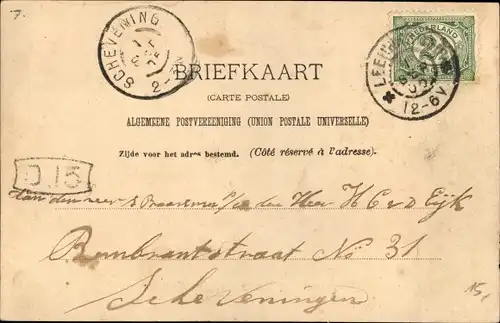 7.
SCHEVENING
NEDERLAND
LEEUWARDEN
12-6V
BRIEFKAART
(CARTE POSTALE)
ALGEMEENE POSTVEREENIGING (UNION POSTALE UNIVERSELLE)
Zijde voor het adres bestemd. (Côté réservé à l'adresse).
D.15
Aan den Heer S Braaksma p/a den Heer H C v D Eijk
Rembrantstraat No 31
Scheveningen